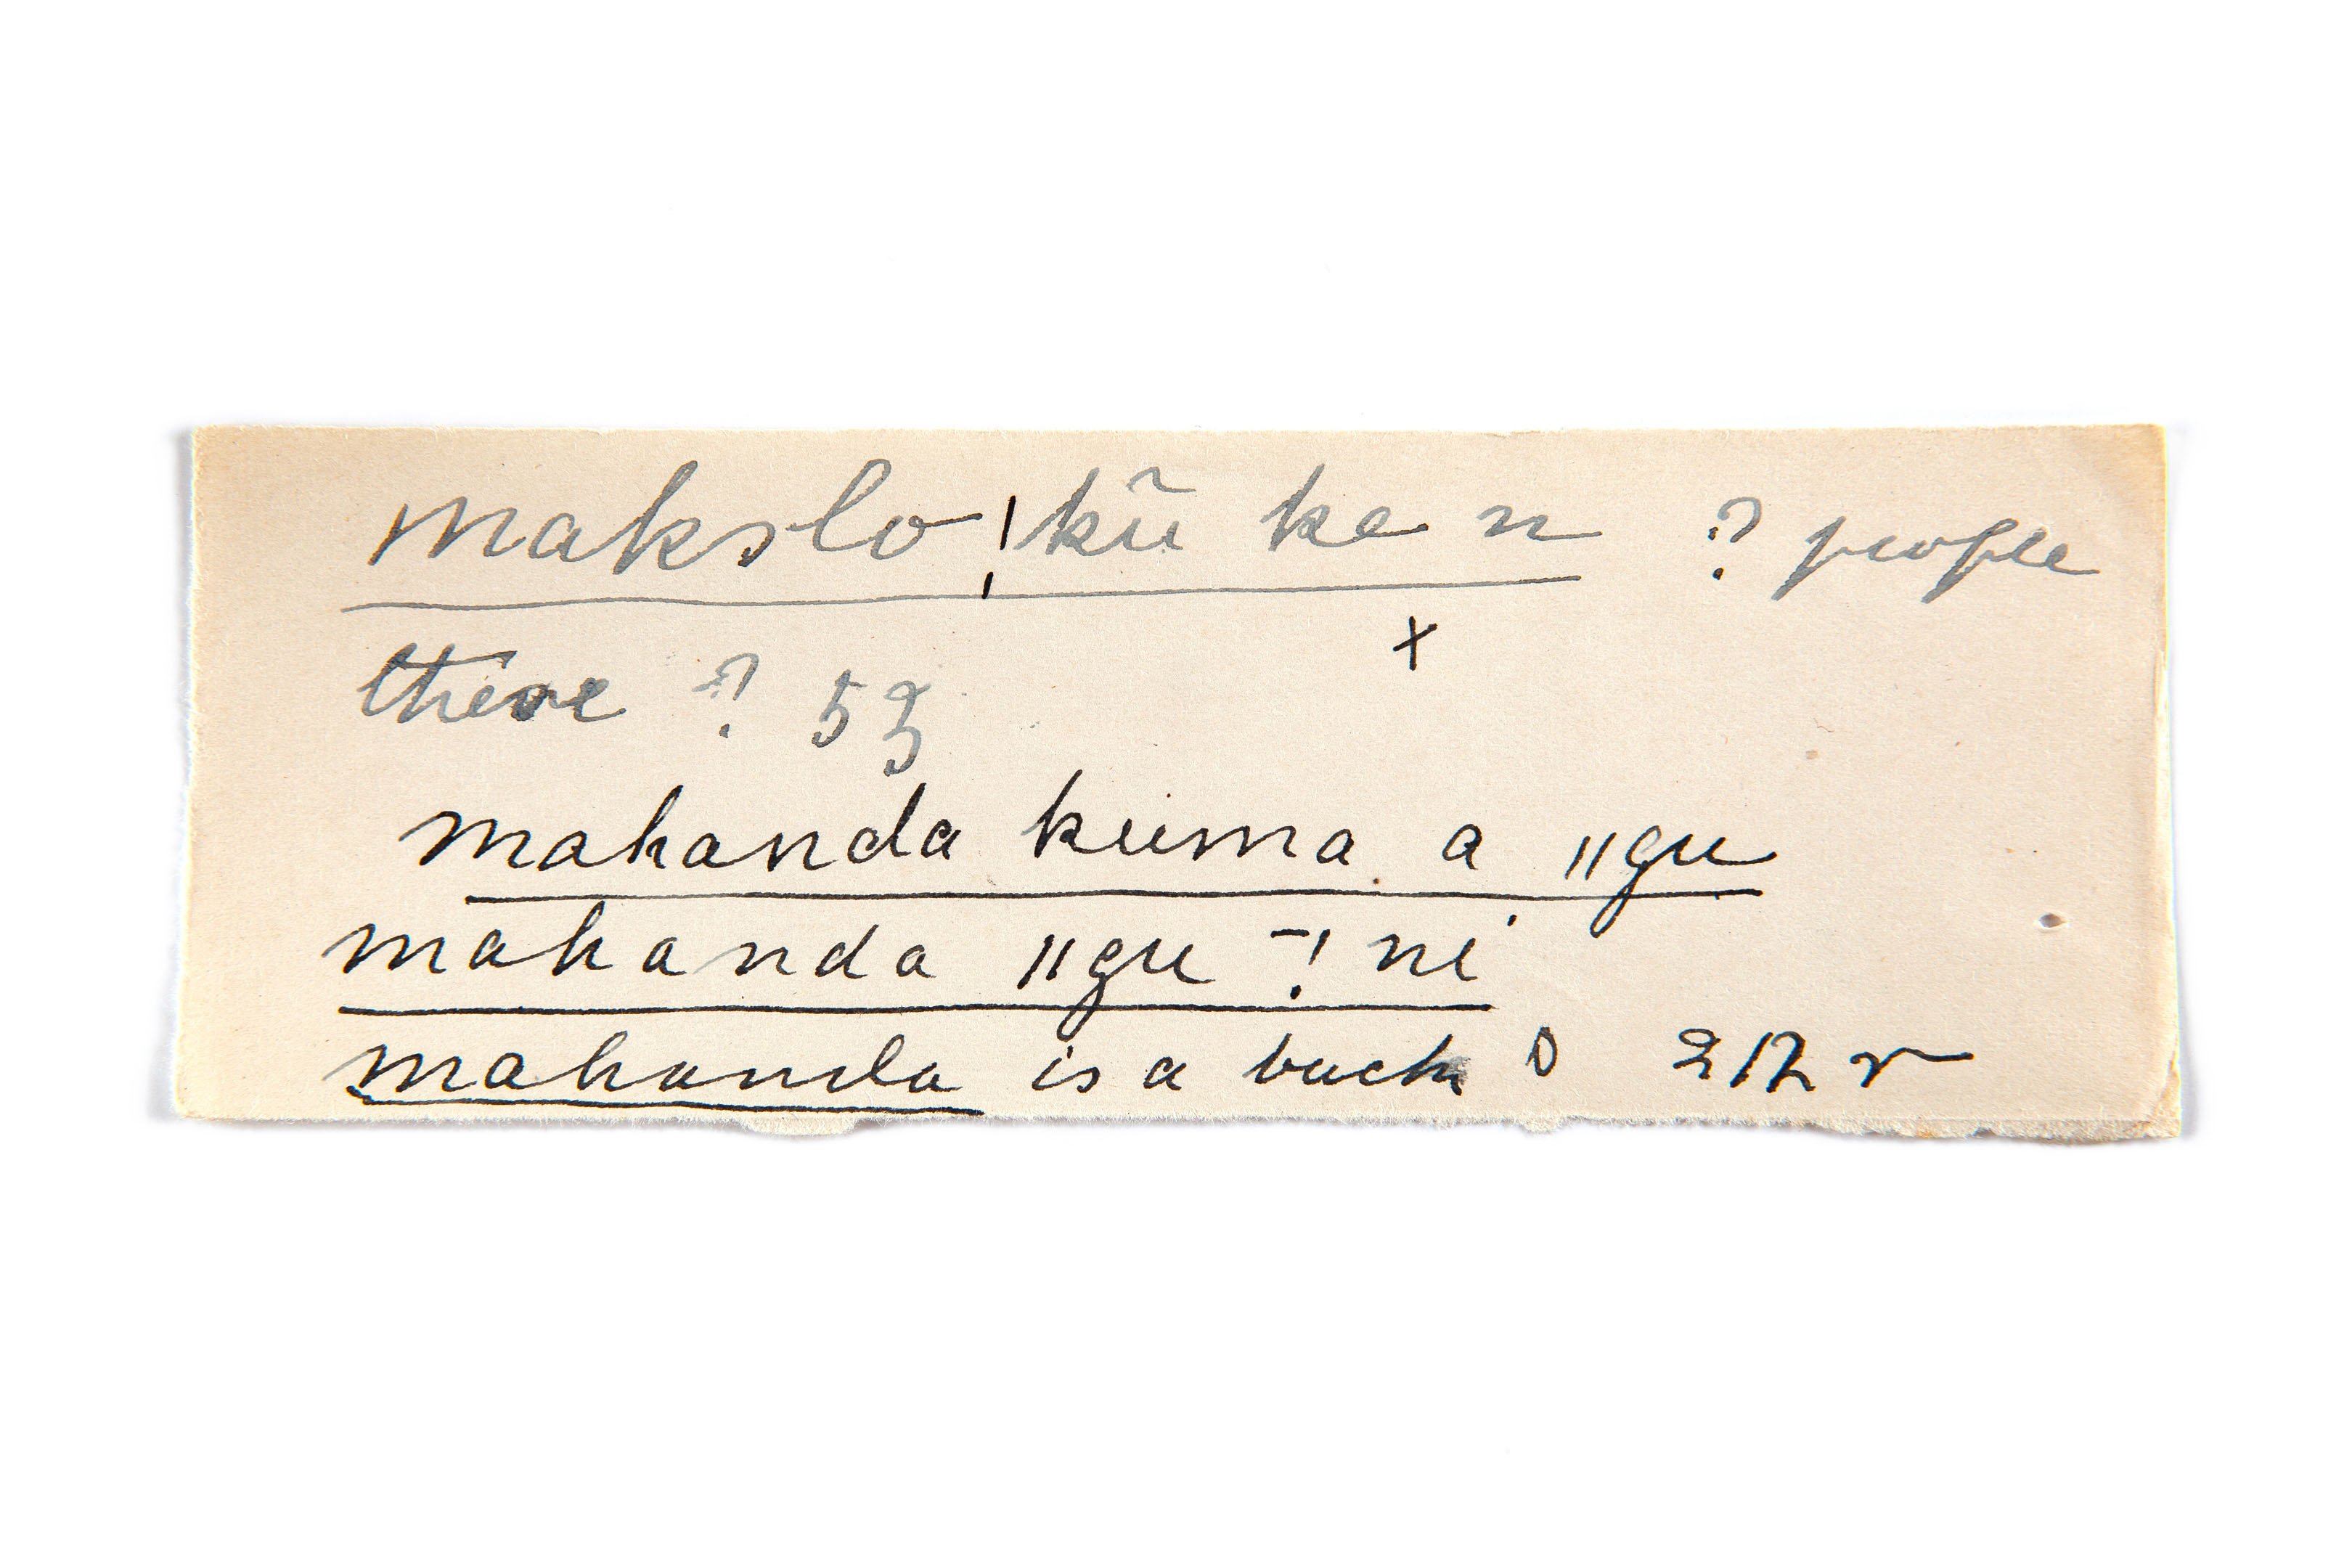 makslo ! kũ ke n ? people
x
there ? 53
mahanda kuma a ǁgu
mahanda ǁgu ̄! ni
mahanda is a buck D 212 r